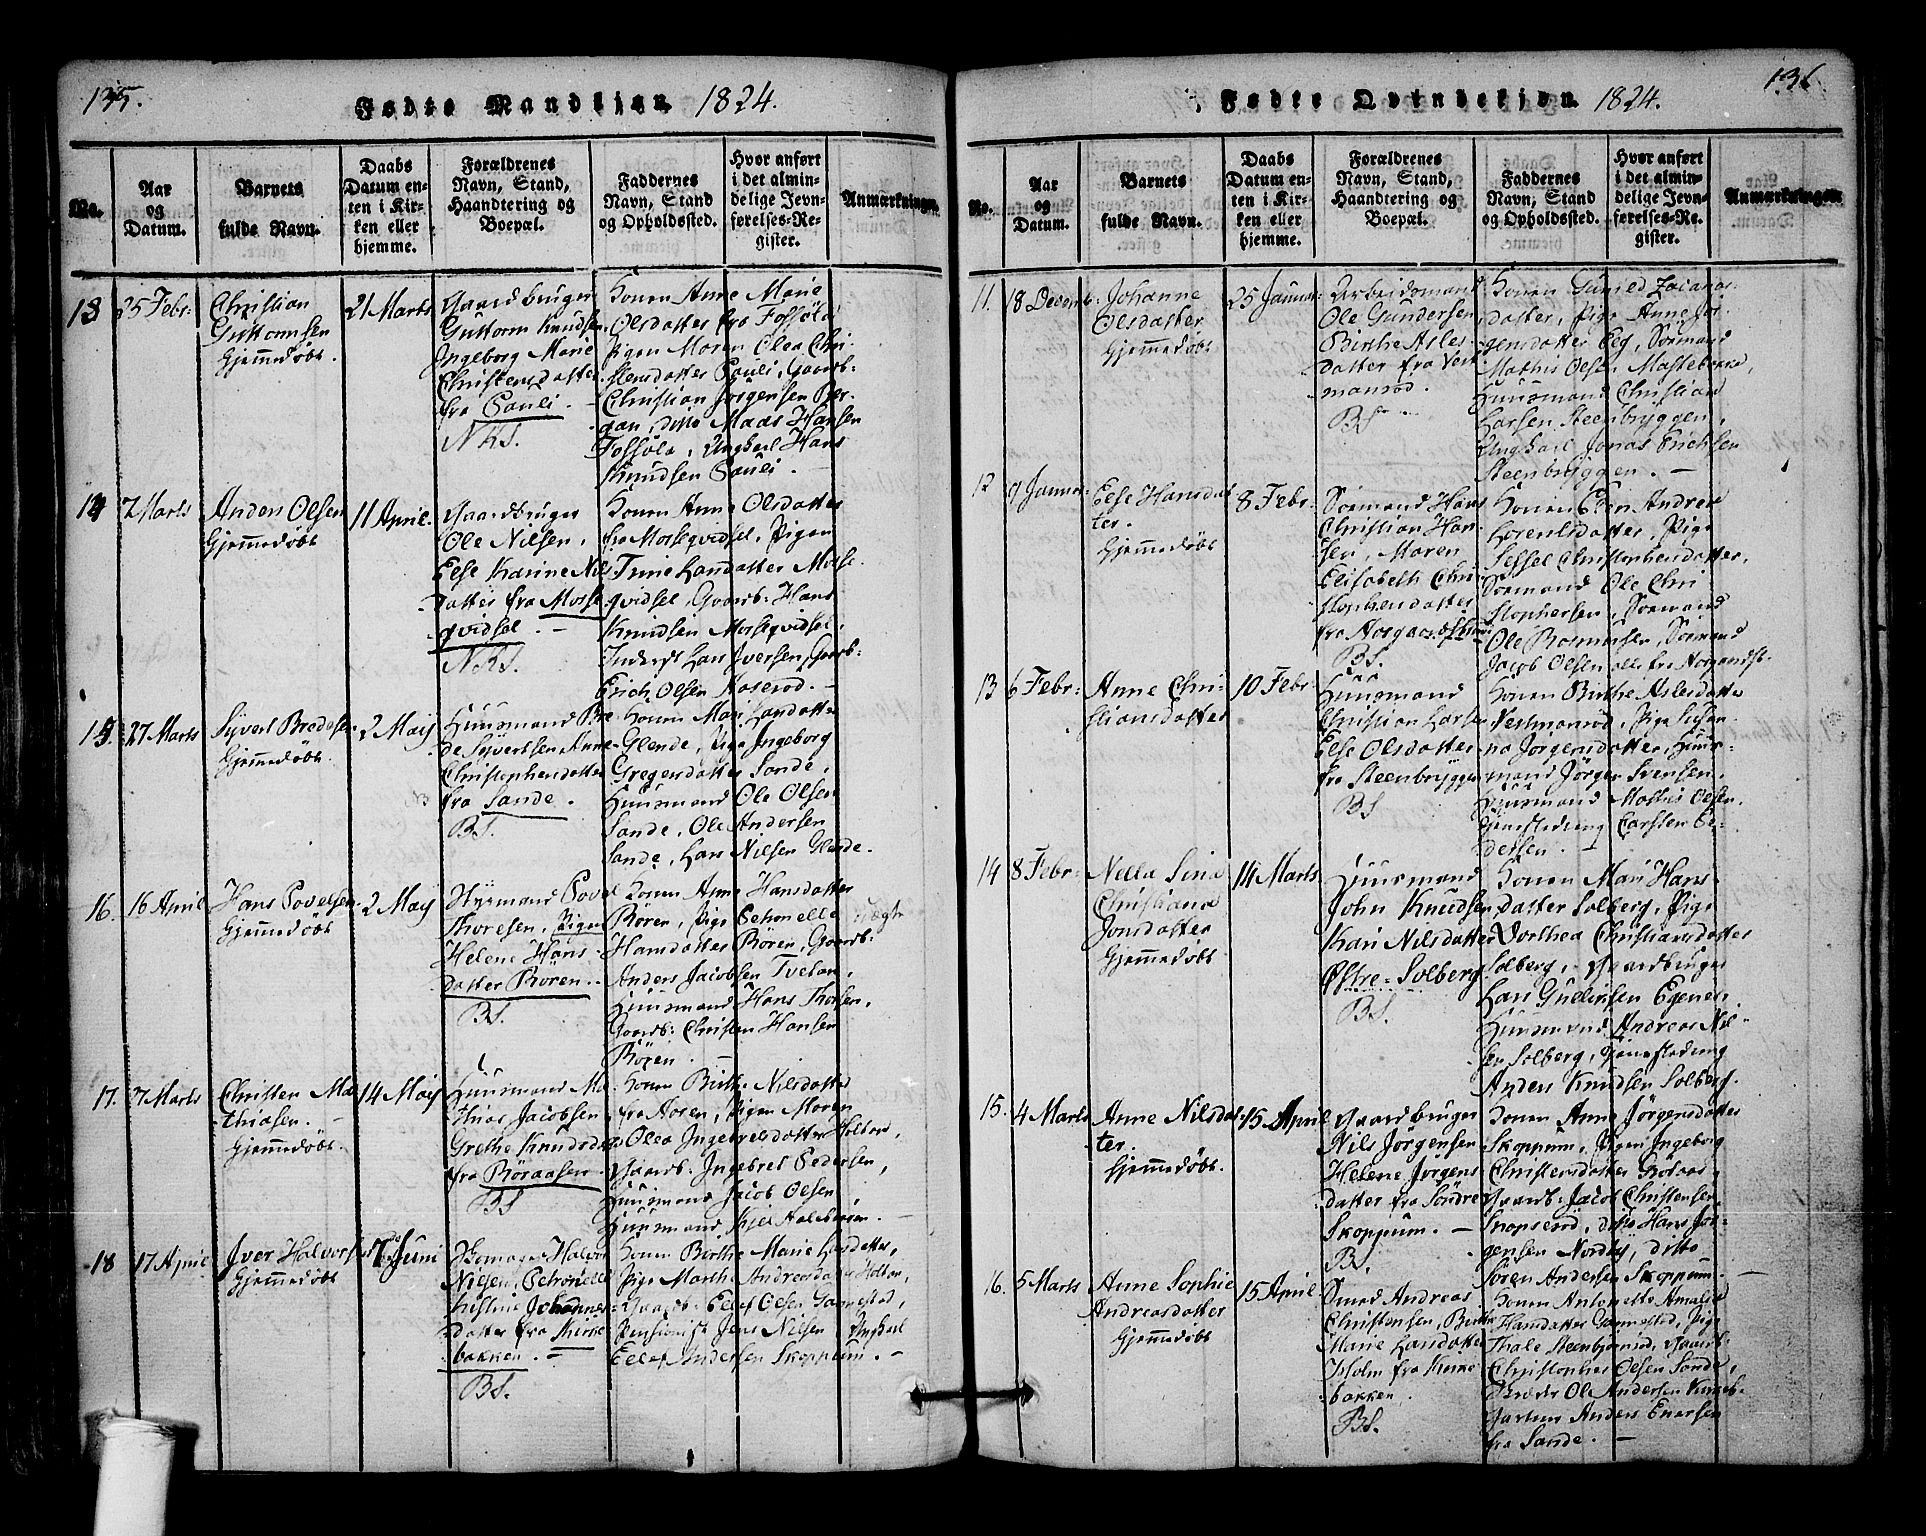 135.
Fødte Mandkjøn 1824.
No.
Aar
og
Datum.
Barnets
fulde Navn.
Daabs
Datum en-
ten i Kir-
ken eller
hjemme.
Forældrenes
Navn, Stand,
Haandtering og
Boepæl.
Faddernes
Navn, Stand
og Opholdssted.
Hvor anført
i det almin-
delige Jevn-
førelses-Re-
gister.
Anmærkninger.
13
25 Febr:
Christian
Guttormsen
Hjemmedøbt
21 Marts
Gaardbruger
Guttorm Knudsen
Ingeborg Marie
Christensdatter
fra Pauli. -
NKS.
Konen Anne Marie
Olsdatter fra Fossøla
Pigen Maren Olea Chri-
stensdatter Pauli, Gaardb:
Christian Jørgensen Ber-
gan, ditto Mads Hansen
Fossøla, Ungkarl Hans
Knudsen Pauli. -
14
7 Marts
Anders Olsen
Hjemmedøbt
11 April.
Gaardbruger
Ole Nilsen,
Else Karine Nils
datter fra Mosse
qvidsel. -
NKS.
Konen Anne Olsdatter
fra Morseqvidsel, Pigen
Trine Larsdatter Morse-
qvidsel, Gaardb: Hans
Knudsen Morseqvidsel,
Inderst Lars Iversen, Gaardb-
Erich Olsen Aaserød. -
15.
27 Marts
Syvert Bredesen
Hjemmedøbt.
2 Maij
Huusmand Bre-
de Syvertsen, Anne
Christophersdatter
fra Sande.
BS.
Konen Mari Larsdatter
Glende, Pige Ingeborg
Gregersdatter Sande,
Huusmand Ole Olsen
Sande, Ole Andersen
Sande, Lars Nilsen Glende.
16.
16 April
Hans Povelsen
Hjemmedøbt
2 Maij
Styrmand Povel
Thoresen, Pigen
Helene Hans-
datter Røren. -
BS.
Konen Anne Hansdatter
Røren, Pige Petronelle
Hansdatter Røren, Gaardb:
Anders Jacobsen Tveten,
Huusmand Hans Thorsen,
Gaardb: Christen Hansen
Røren. -
Uægte
17.
7 Marts
Christen Ma
thiasen. -
Hjemmedøbt.
14 Maij
Huusmand Ma-
thias Jacobsen
Grethe Knudsdat
fra Røraasen.
BS
Konen Birthe Nilsdatter
fra Aasen, Pigen Maren
Olea Ingebretsdatter Holtan,
Gaardb: Ingebret Pedersen,
Huusmand Jacob Olsen,
Huusmand Kjel
18
17 April
Iver Halvorsen
Hjemmedøbt
7de Juni
Skomager Halvor
Nilsen, Petronelle
Kistine Johannes-
datter fra Kirke-
bakken. -
BS.
Konen Birthe Marie Larsdatter,
Pige Marthe Andreasdatter Holtan,
Gaardb: Ellef Olsen Gannestad,
Pensionist Jens Nilsen Ungkarl
Ellef Andersen Skoppum. -
136
Fødte Qvindekjøn. 1824.
No.
Aar
og
Datum.
Barnets
fulde Navn.
Daabs
Datum en-
ten i Kir-
ken eller
hjemme.
Forældrenes
Navn, Stand,
Haandtering og
Boepæl.
Faddernes
Navn, Stand
og Opholdssted.
Hvor anført
i det almin-
delige Jevn-
førelses-Re-
gister.
Anmærkninger.
11.
18 Decemb:
Johanne
Olsdatter
Hjemmedøbt
25 Januar
Arbeidsmand
Ole Gundersen
Birthe Asles-
datter fra Vest
mansrød.
BS
Konen Gunild Zacarias-
datter, Pige Anne Jør-
gensdatter Eeg, Sørmand
Mathis Olsen Mastebakke,
Huusmand Christian
Larsen Steenbryggen,
Ungkarl Jonas Erichsen
Steenbryggen. -
12
9 Januar
Else Hansdat-
ter.
Hjemmedøbt
8 Febr:
Sørmand Hans
Christian Han-
sen, Maren
Elisabeth Chri
stophersdatter
fra Aasgaardstrand
BS.
Konen Ellen Andrea
Lorentsdatter, Pige
Sessel Christophersdatter,
Sørmand Ole Chri
stophersen, Sørmand
Ole Rasmusen, Sørmand
Jacob Olsen alle fra Aasgaardst.
13
6 Febr:
Anne Chri-
stiansdatter
10 Febr
Huusmand
Christian Larsen
Else Olsdatter
fra Steenbryggen
BS
Konen Birthe Aslesdatter
Vestmansrød, Pige Susan-
na Jørgensdatter, Huus-
mand Jørgen Svensen,
Huusmand Mathis Olsen,
Tjenestedreng Carsten Pe-
dersen. -
14
8 Febr:
Nella Sina
Christiana
Jonsdatter
Hjemmedøbt
14 Marts
Huusmand
John Knudsen
Kari Nilsdatter
Østre-Solberg
BS.
Konen Mari Hans-
datter Solberg, Pige
Dorthea Christiansdatter
Solberg, Gaardbruger
Lars Gulliksen Egenes,
Huusmand Andreas Nil-
sen Solberg, Tjenestedreng
Anders Knudsen Solberg.
15.
4 Marts
Anne Nilsdat-
ter.
Hjemmedøbt.
15 April
Gaardbruger
Nils Jørgensen
Helene Jørgens
datter fra Søndre
Skoppum. -
B.
Konen Anne Jørgensdatter
Skoppum, Pigen Ingeborg
Christensdatter
Gaardb: Jacob Christensen
Snopserød, ditto Hans Jør-
gensen Nordby, ditto
Søren Andersen Skoppum. -
16.
5 Marts
Anne Sophie
Andreasdatter
Hjemmedøbt
15 April
Smed Andreas
Christensen, Birthe
Marie Larsdatter
Holm fra Kirke-
bakken.
BS.
Konen Antonette Amalia
Hansdatter Gannestad, Pige
Thale Steenbjørnsrød, Gaardb
Christopher Olsen Sande,
Skræder Ole Andersen Kirkeb-
Anders Enersen
fra Sande. -